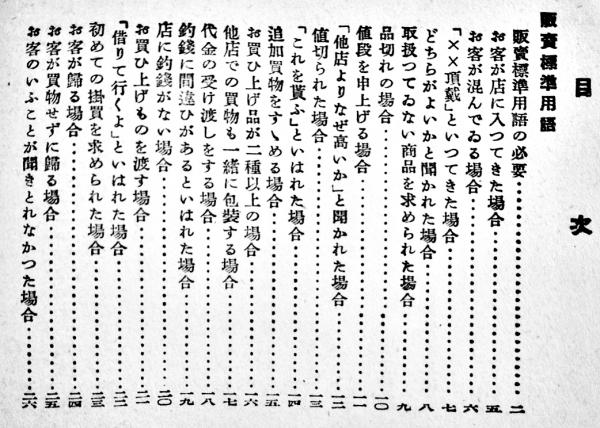 目次
販賣標準用語
販賣標準用語の必要……………………二
お客が店に入つてきた場合……………五
お客が混んでゐる場合…………………六
「××頂戴」といつてきた場合…………七
どちらがよいかと聞かれた場合………八
取扱つてゐない商品を求められた場合…九
品切れの場合……………………………一〇
値段を申上げる場合……………………一一
「他店よりなぜ高いか」と聞かれた場合…一二
値切られた場合…………………………一三
「これを貰ふ」といはれた場合…………一四
追加買物をすゝめる場合………………一五
お買ひ上げ品が二種以上の場合………一六
他店での買物も一緒に包装する場合…一七
代金の受け渡しをする場合……………一八
釣錢に間違ひがあるといはれた場合…一九
店に釣錢がない場合……………………二〇
お買ひ上げものを渡す場合……………二一
「借りて行くよ」といはれた場合………二二
初めての掛買を求められた場合………二三
お客が歸る場合…………………………二四
お客が買物せずに歸る場合……………二五
お客のいふことが聞きとれなかつた場合…二六